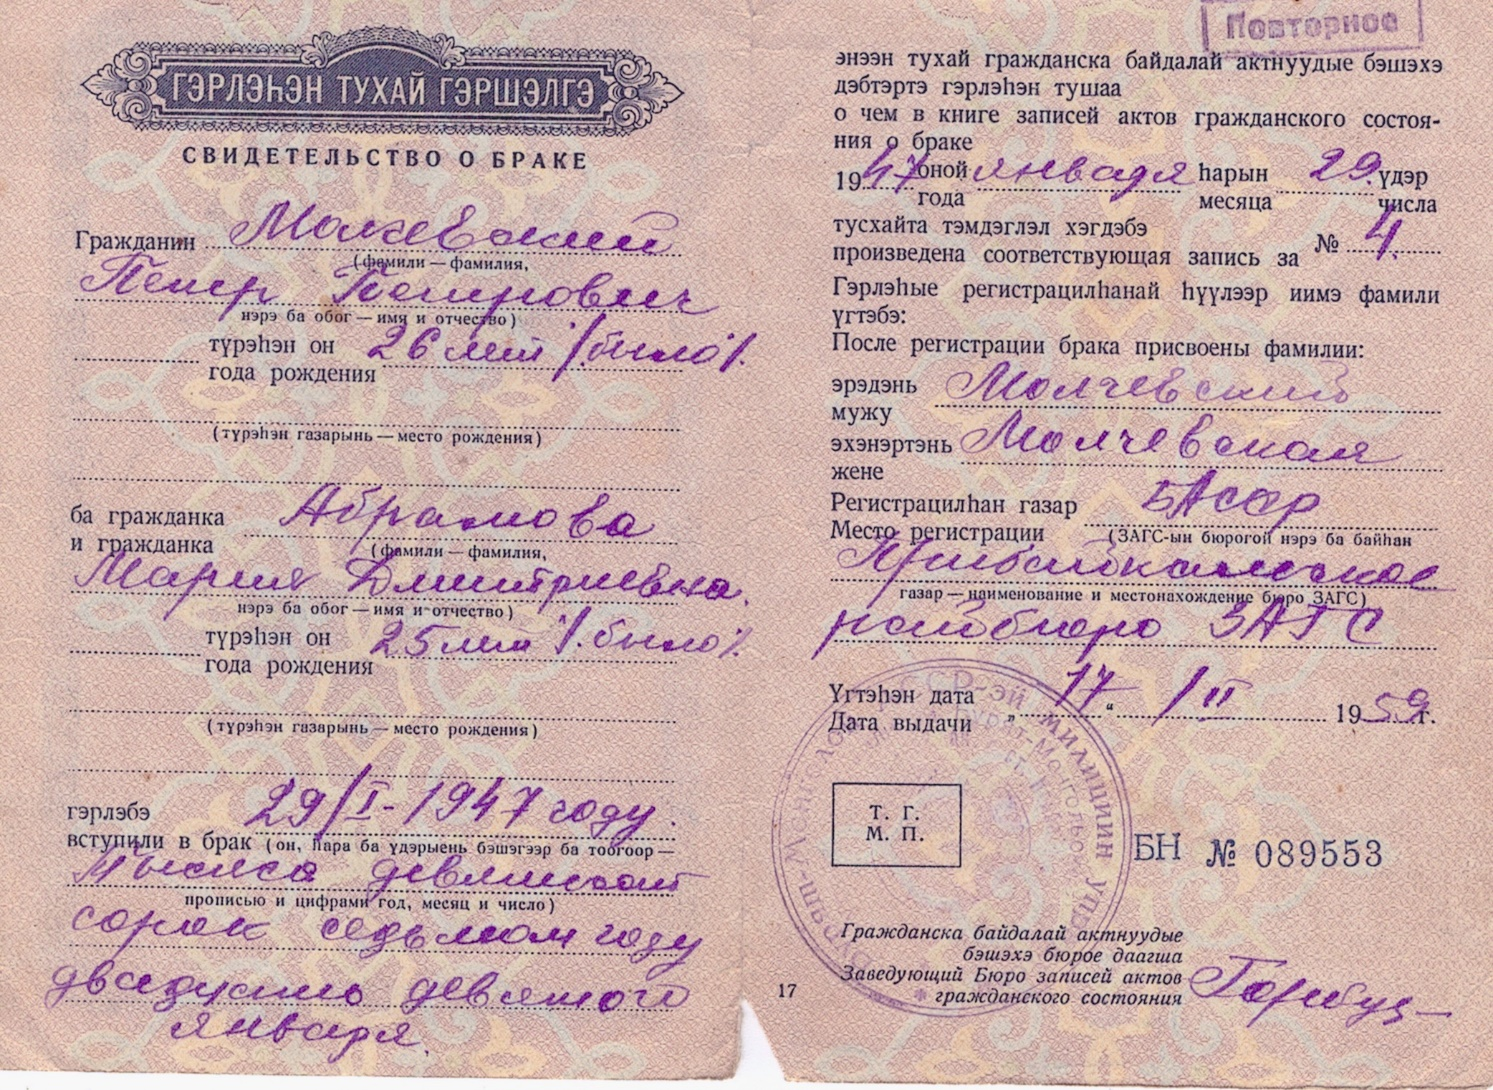 ГЭРЛЭҺЭН ТУХАЙ ГЭРШЭЛГЭ
СВИДЕТЕЛЬСТВО О БРАКЕ
Гражданин Молчевский
(фамили — фамилия,
Петр Петрович
нэрэ ба обог — имя и отчество)
түрэһэн он 26 лет /было/.
года рождения
(түрэһэн газарынь — место рождения)
ба гражданка Абрамова
и гражданка (фамили — фамилия,
Мария Дмитриевна.
нэрэ ба обог — имя и отчество)
түрэһэн он 25 лет /было/
года рождения
(түрэһэн газарынь — место рождения)
гэрлэбэ 29/I - 1947 году.
вступили в брак (он, һара ба үдэрыень бэшэгээр ба тоогоор —
тысяса девятьсот
прописью и цифрами год, месяц и число)
сорок седьмом году
двадцать девятого
января.
Повторное
энээн тухай гражданска байдалай актнуудые бэшэхэ
дэбтэртэ гэрлэһэн тушаа
о чем в книге записей актов гражданского состоя-
ния о браке
1947 оной января һарын 29. үдэр
года месяца числа
тусхайта тэмдэглэл хэгдэбэ
произведена соответствующая запись за № 4.
Гэрлэһые регистрацилһанай һүүлээр иимэ фамили
үгтэбэ:
После регистрации брака присвоены фамилии:
эрэдэнь Молчевский
мужу
эхэнэртэнь Молчевская
жене
Регистрацилһан газар БАССР
Место регистрации (ЗАГС-ын бюрогой нэрэ ба байһан
Прибайкальское
газар — наименование и местонахождение бюро ЗАГС)
райбюро ЗАГС
Үгтэһэн дата 17 / II
Дата выдачи „ “ 1959 г.
Т. Г.
М. П.
БН № 089553
Гражданска байдалай актнуудые
бэшэхэ бюрое даагша
Заведующий Бюро записей актов
гражданского состояния
17